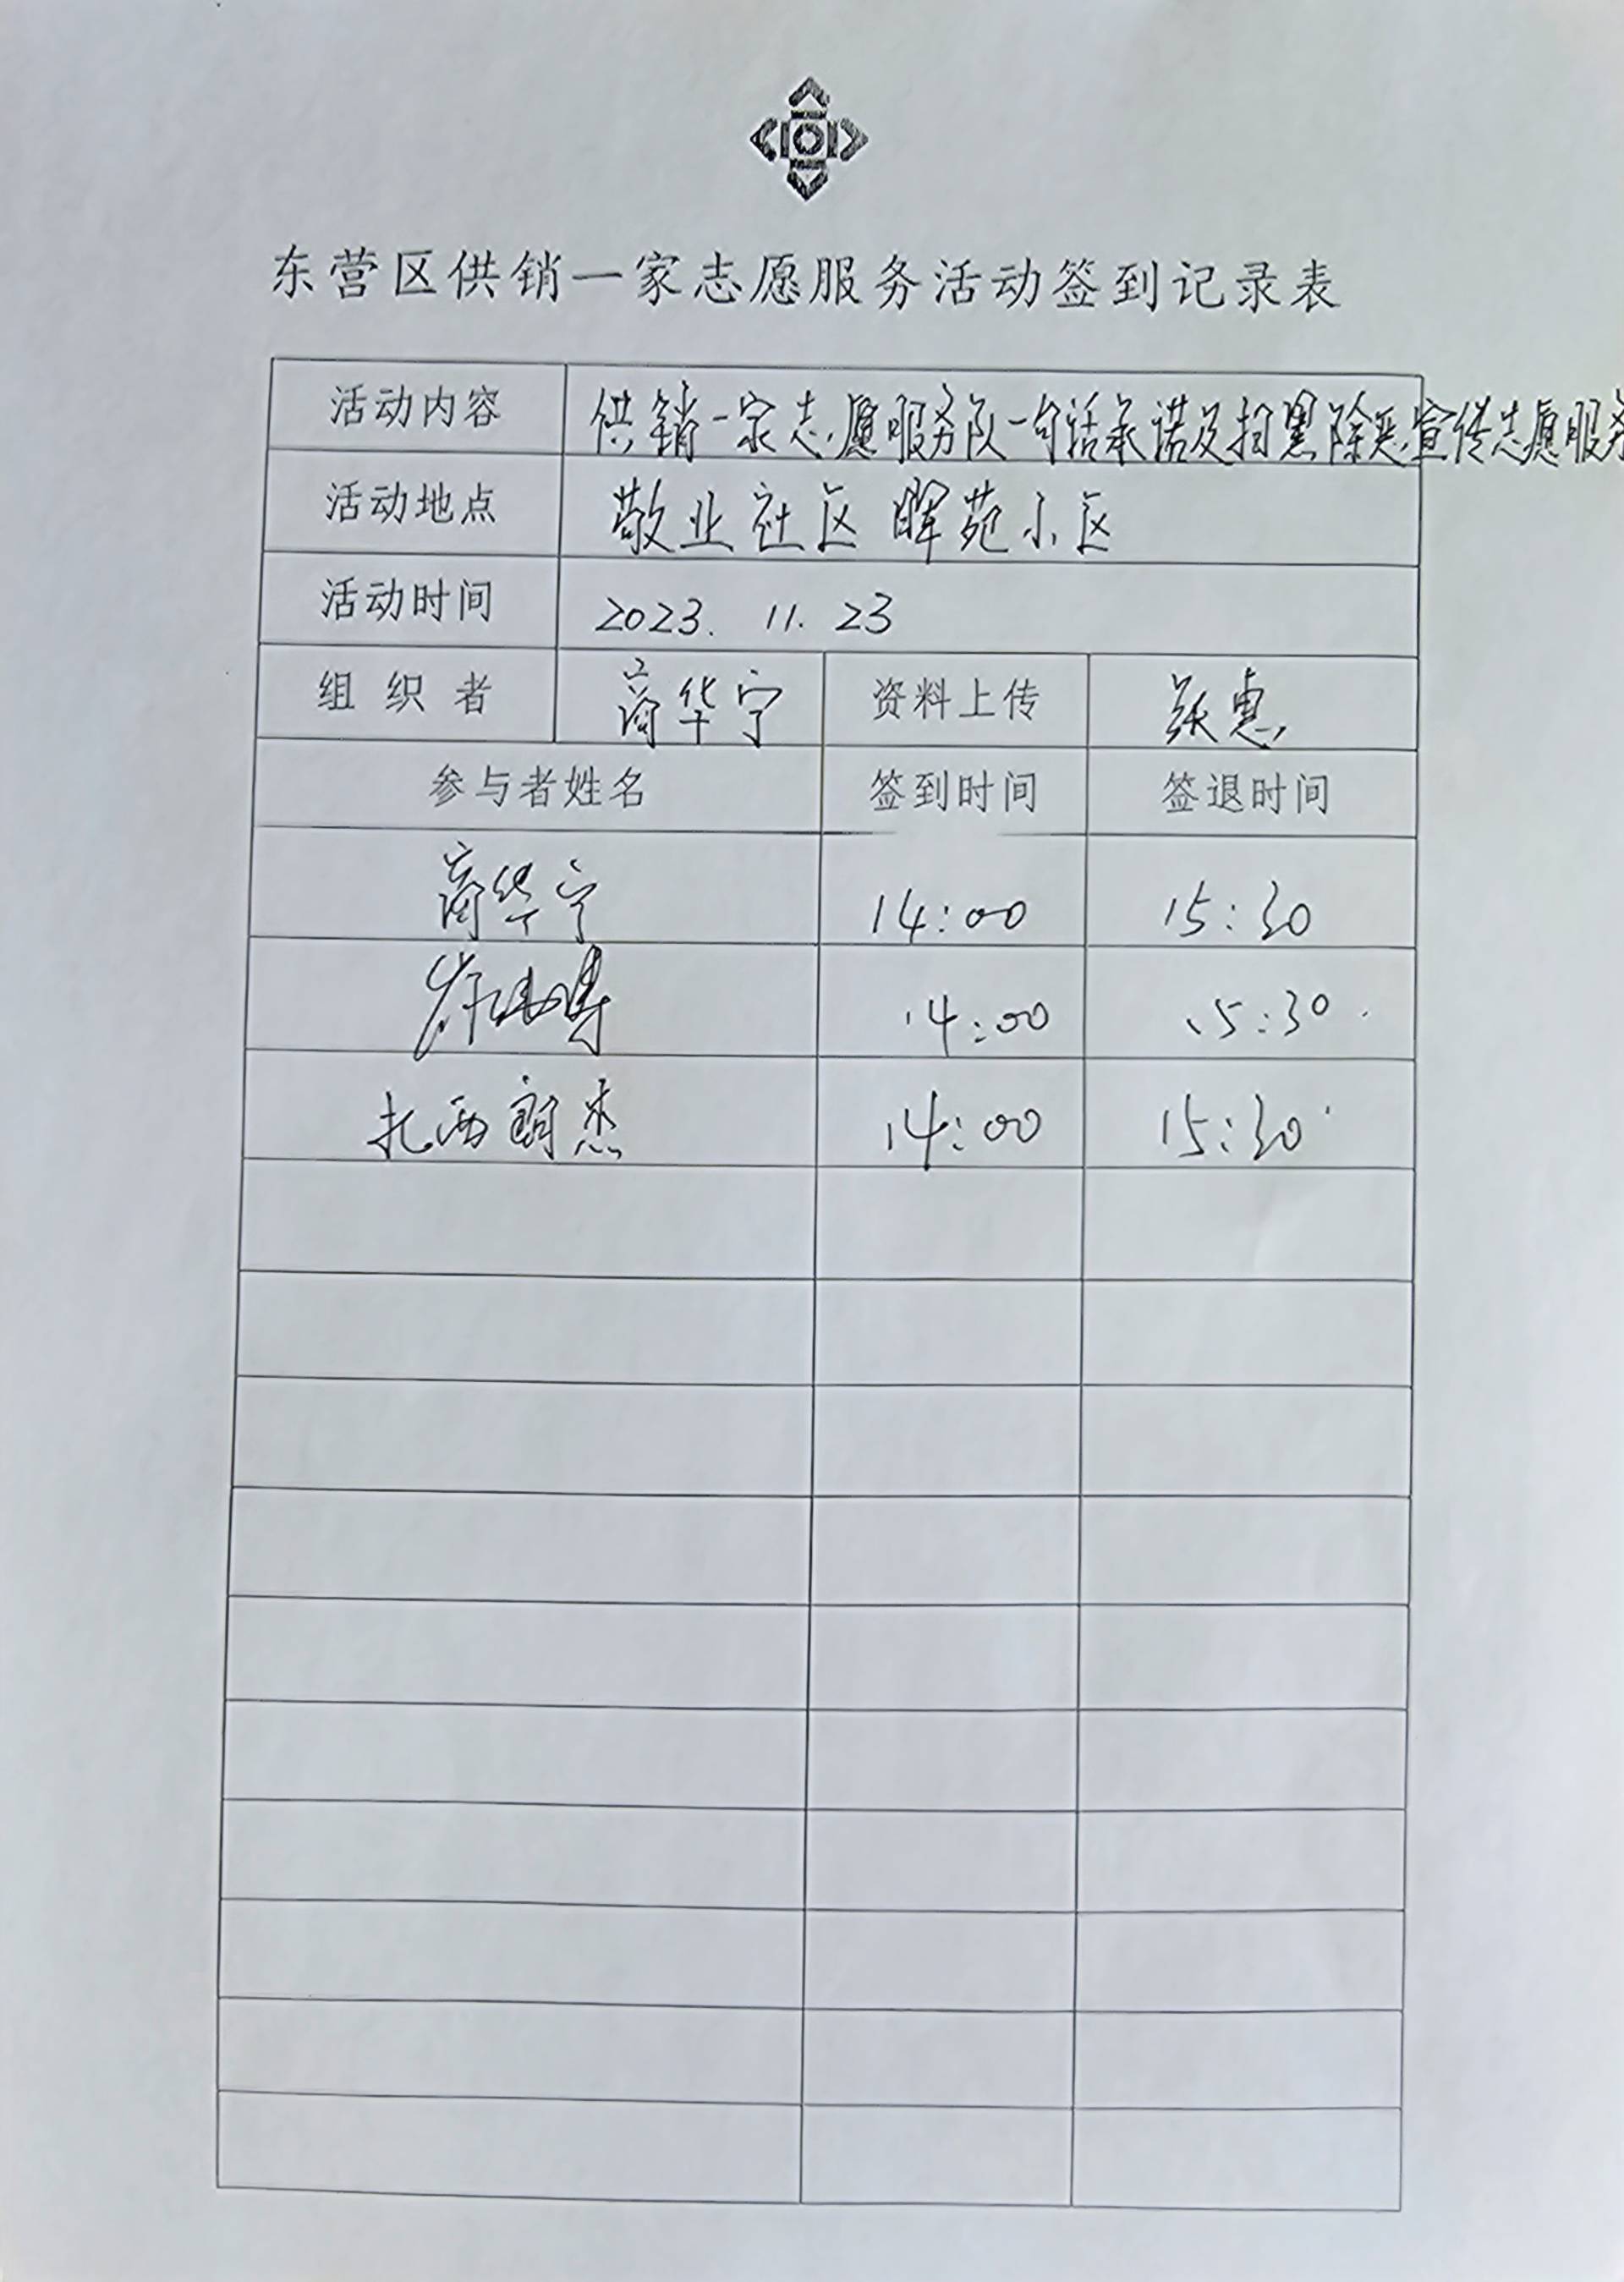 东营区供销一家志愿服务活动签到记录表
活动内容 供销一家志愿服务队一句话承诺及扫黑除恶宣传志愿服务
活动地点 敬业社区 晖苑小区
活动时间 2023. 11. 23
组织者 商华宁 资料上传 张惠
参与者姓名 签到时间 签退时间
商华宁 14:00 15:30
14:00 15:30
扎西朗杰 14:00 15:30